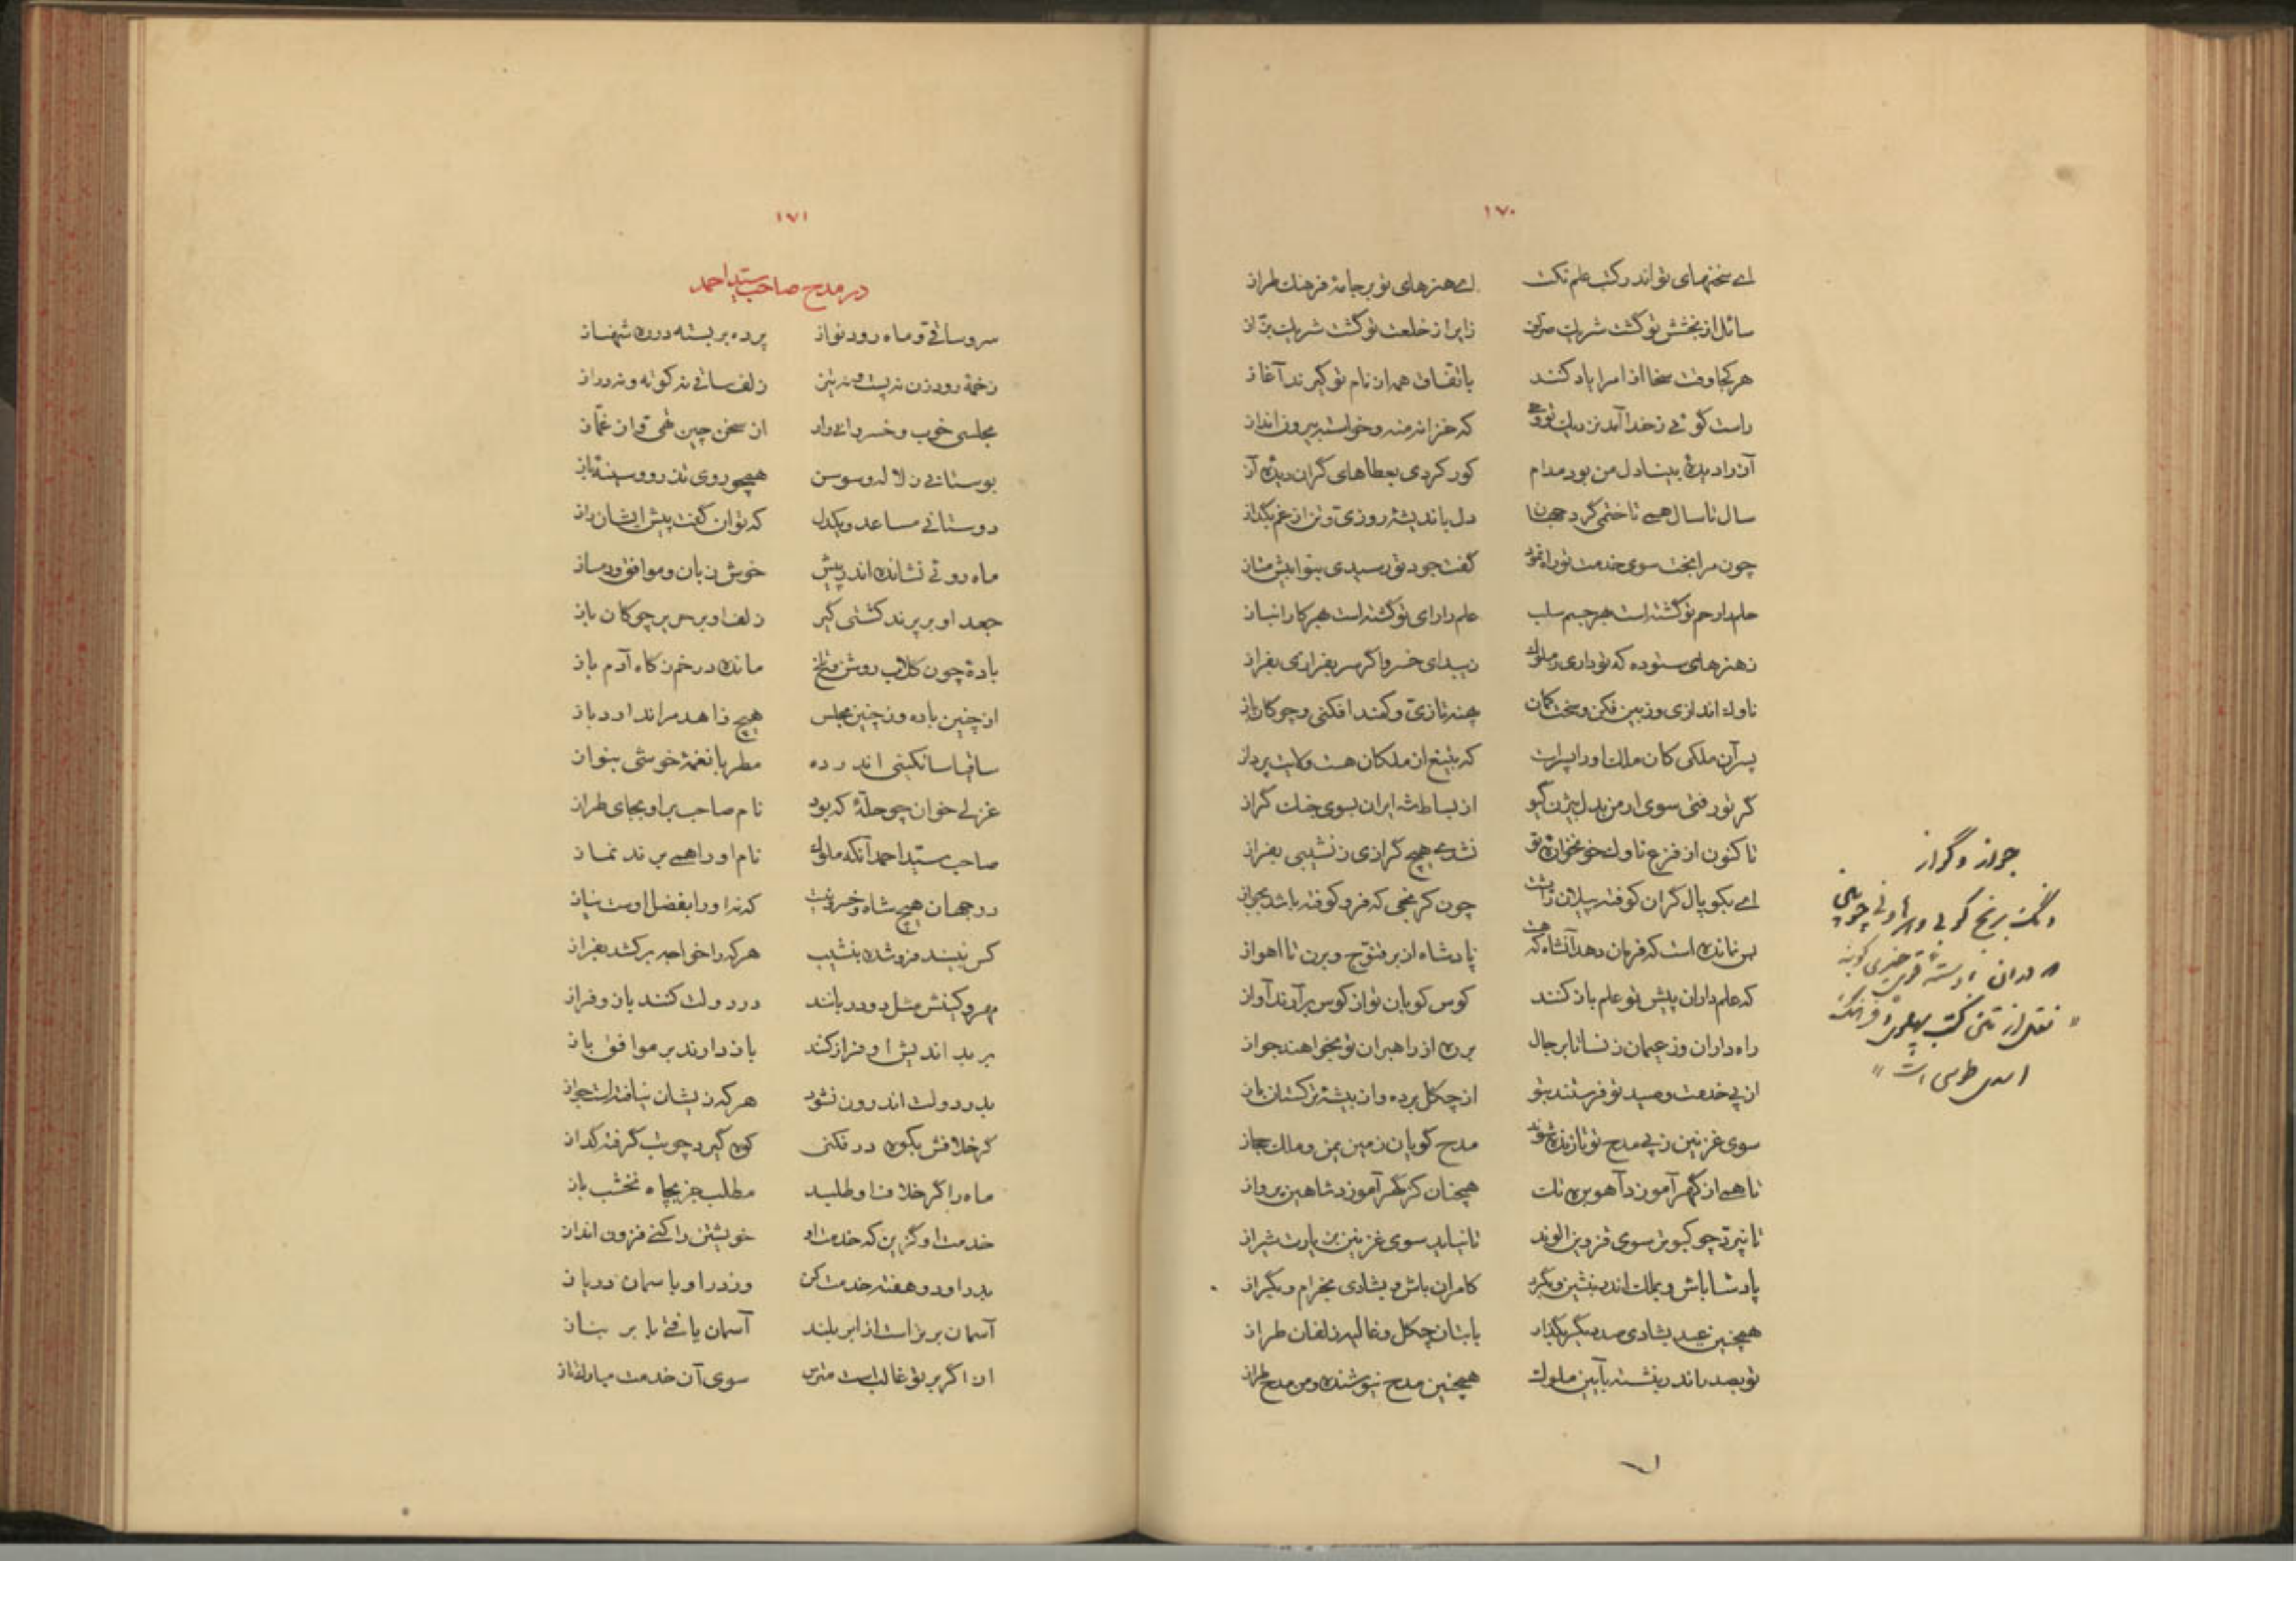 ۱۷۰
اے سخنهای تو اندر کتب علم نکت اے هنرهای تو بر جامهٔ فرهنك طراز
سائل از بخشش تو گشت شریك صراف زایر از خلعت تو گشت شریك بزّاز
هر کجا وقت سخا از امرا یاد کنند باتفاق همه از نام تو گیرند آغاز
راست گوئی ز خدا آمده نزدیك تو وحی که خزانه منه و خواسته بیرون انداز
آز را دیدهٔ بینا دل من بود مدام کور کردی بعطاهای گران دیدهٔ آز
سال تا سال همی تاختمی گرد جهان دل باندیشهٔ روزی و تن از غم بگداز
چون مرا بخت سوی خدمت تو راه نمود گفت جود تو رسیدی بنوا بیش متاز
زهنرهای ستوده که تو داری ز ملوك زیبد ای خسرو اگر سر بفرازی بفراز
ناوك اندازی و زوبین فکن و سخت کمان
پس آن ملکی کان ملك او را پسر است که بتیغ از ملکان هست ولایت پرداز
گر تو رفتی سوی ارمن بدل بیژن گیو از بساط شه ایران بسوی جنك گراز
تا کنون از فزع ناوك خونخوارهٔ تو نشدے هیچ گرازی ز نشیبی بفراز
اے بکوپال گران کوفته پیلان را پشت چون کرنجی که فرو کوفته باشد بجواز
بس نمانده است که فرمان دهد آنشاه که هست پادشاه از بر قنّوج و برن تا اهواز
که علمداران پیش تو علم باز کنند کوس کوبان تو از کوس برآرند آواز
راه داران و زعیمان ز نسا تا برجال بره از راهبران تو بخواهند جواز
از پی خدمت و صید تو فرستند بتو از چگل برده و از بیشهٔ ترکستان باز
سوی غزنین ز پی مدح تو تازنده شوند مدح گویان زمین یمن و ملك حجاز
تا همی از گهر آموزد آهو بره تك همچنان کز گهر آموزد شاهین پرواز
تا نپرّد چو کبوتر سوی قزوین الوند تا نیاید سوی غزنین بزیارت شیراز
پادشا باش و بملك اندر بنشین و بگرد کامران باش و بشادی بخرام و بگراز
همچنین عید بشادی صد دیگر بگذار با بتان چگل و غالیه زلفان طراز
تو بصدر اندر بنشسته بآیین ملوك همچنین مدح نیوشنده و من مدح طراز
جواز و گراز
۱۷۱
در مدح صاحب سید احمد
سرو ساقی و ماه رود نواز پرده بر بسته در ره شهناز
زخمهٔ رود زن نه پست و نه تیز زلف ساقی نه کوته و نه دراز
مجلسی خوب و خسروانی وار از سخن چین تهی و از غمّاز
بوستانی ز لاله و سوسن همچو روی تذرو و سینهٔ باز
دوستانی مساعد و یکدل که توان گفت پیش ایشان راز
ماه روئی نشانده اندر پیش خوش زبان و موافق و دمساز
جعد او بر پرند کشتی گیر زلف او بر حریر چوگان باز
بادهٔ چون گلاب روشن و تلخ مانده در خم ز گاه آدم باز
از چنین باده و ز چنین مجلس هیچ زاهد مرا ندارد باز
ساقیا ساتگینی اندر ده مطربا نغمهٔ خوشی بنواز
غزلی خوان چو حلّهٔ که بود نام صاحب بر او بجای طراز
صاحب سیّد احمد آنکه ملوك نام او را همی برند نماز
در جهان هیچ شاه و خسرو نیست که نه او را بفضل اوست نیاز
کس نبیند فرو شده بنشیب هر که را خواجه برکشد بفراز
مهر و کینش مثل دو دربانند در دولت کنند باز و فراز
بر بد اندیش او فراز کنند باز دارند بر موافق باز
بدر دولت اندرون نشود هر که زیشان نیافته است جواز
گر خلافش بکوه در فکنی کوه گیرد چو تب گرفته گداز
ماه را گر خلاف او طلبید مطلب جز بچاه نخشب باز
خدمت او گزین که خدمت او خویشتن را کنی فزون انداز
بدر او دو هفته خدمت کن وز در او بآسمان در یاز
آسمان برتر است از ابر بلند آسمان یافتی بابر بناز
از اگر بر تو غالب است مترس سوی آن خدمت مبارك تاز